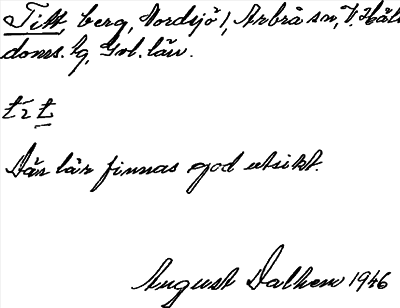 Titt berg, Nordsjö 1, Arbrå sn, V. Häl
doms. lg, Gvl. län.
tìt
Där lär finnas god utsikt.
August Dalhem 1946